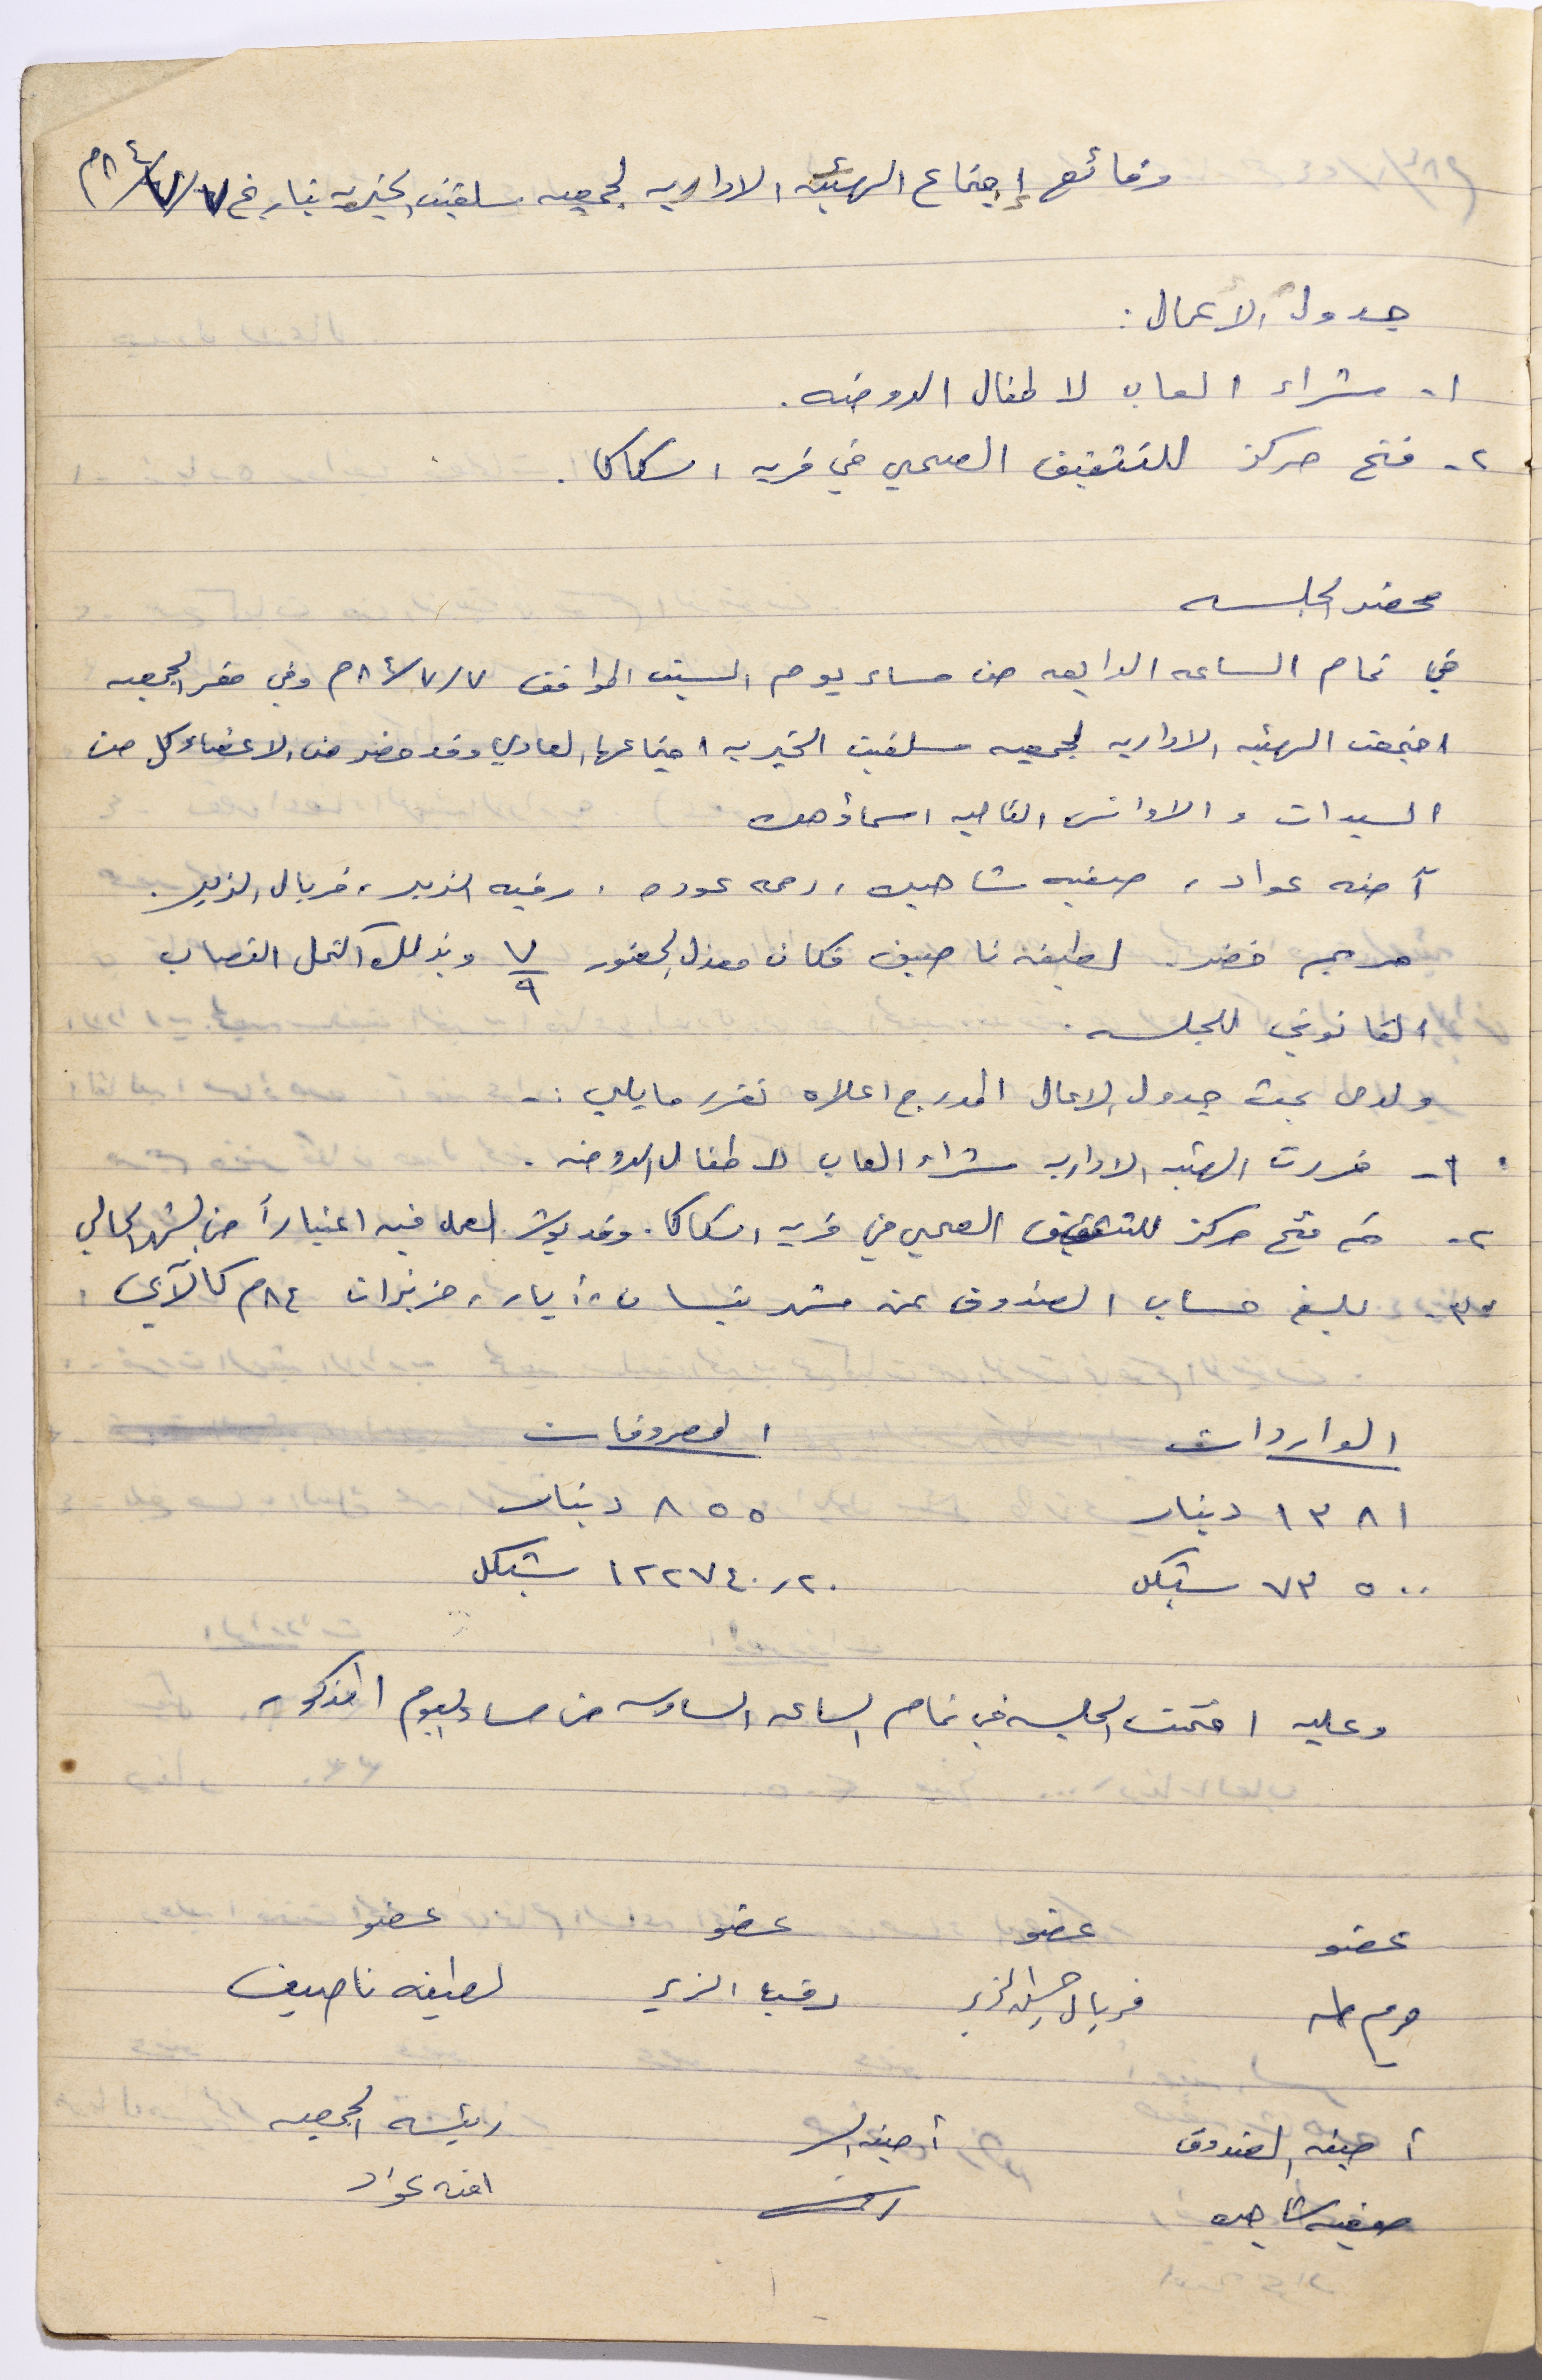 وقائع إجتماع الهيئه الاداريه لجمعيه سلفيت الخيريه بتاريخ ٧/٧/٨٤م
جدول الأعمال :
١- شراء العاب لاطفال الروضه .
٢- فتح مركز للتثقيف الصحي في قريه اسكاكا .
محضر الجلسه
في تمام الساعه الرابعه من مساء يوم السبت الموافق ٧/٧/٨٤م وفي مقر الجمعيه
اجتمعت الهيئه الاداريه لجمعيه سلفيت الخيريه اجتماعها العادي وقد حضر من الاعضاء كل من
السيدات و الاوانس التاليه اسماؤهن
آمنه عواد ، صفيه شاهين ، رحمه عوده ، رقيه الزير ، فريال الزير .
مريم خضر . لطيفه ناصيف فكان معدل الحضور ٧/٩ وبذلك اكتمل النصاب
القانوني للجلسه .
ولدى بحث جدول الاعمال المدرج اعلاه تقرر مايلي :-
١- قررت الهيئه الاداريه شراء العاب لاطفال الروضه .
٢- تم فتح مركز للتثقيف الصحي في قريه اسكاكا . وقد بوشر العمل فيه اعتباراً من الشهر الحالي
٣- بلغ حساب الصندوق عن شهر نيسان ، أيار ، حزيران ٨٤م كالآتي :
الواردات المصروفات
١٣٨١ دينار ٨٥٥ دينار
٧٣٥٠٠ شيكل ١٢٢٧٤٠٫٢٠ شيكل
وعليه اختتمت الجلسه في تمام الساعه السادسه من مساء اليوم المذكور
عضو عضو عضو عضو
مريم طه فريال الزير رقيه الزير لطيفه ناصيف
أمينه الصندوق أمينه السر رئيسه الجمعيه
صفيه شاهين امنه عواد